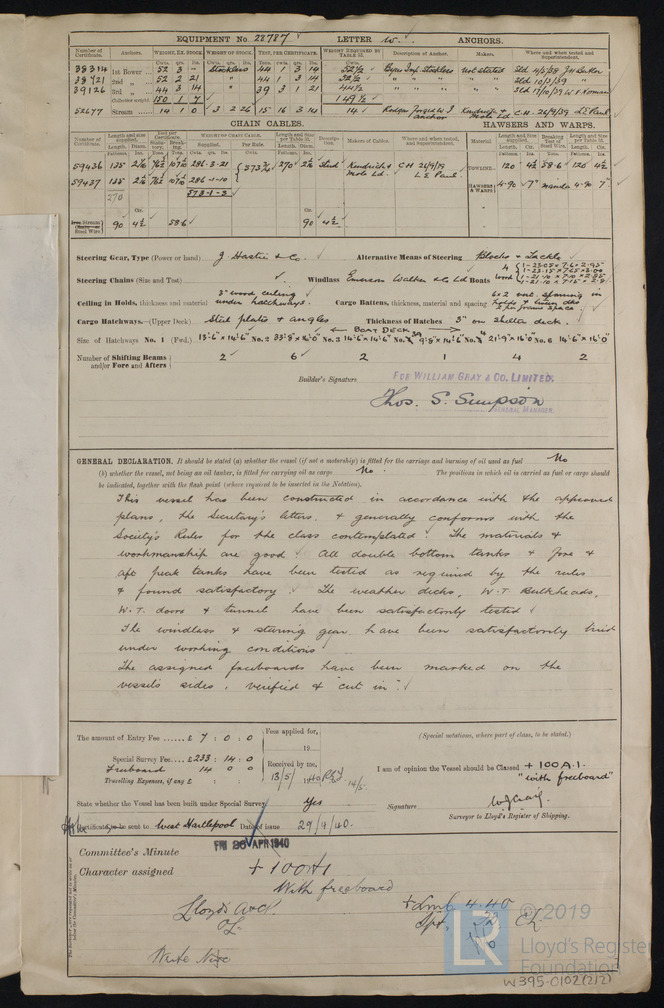 EQUIPMENT No. 28787 LETTER W. ANCHORS.
Number of Certificate. Anchors. WEIGHT, EX. STOCK. WEIGHT OF STOCK. TEST, PER CERTIFICATE. WEIGHT REQUIRED BY TABLE 53. Description of Anchor. Makers. Where and when tested and Superintendent.
Cwts. qrs. lbs. Cwts. qrs. lbs. Tons. cwts. qrs. lbs. Cwts.
38314 1st Bower 52 3 - Stockless 44 1 3 14 52½ Byers Imp. Stockless Not stated Sld 4/5/38
38721 2nd " 52 2 21 " 44 1 3 14 52½ " " " Sld 10/3/39
39126 3rd " 44 3 14 " 39 3 1 21 44½ " " " Sld 17/10/39
Collective weight 150 1 7 149½
52677 Stream 14 1 0 3 2 26 15 16 3 14 14 Rodger Forged W.I. anchor C.H. 26/9/39 L.E. Paul
CHAIN CABLES. HAWSERS AND WARPS.
59436 135 286·3·21 573¾ 270 Stud Kendrick & Mole Ld. C.H. 21/9/39 L.E. Paul TOWLINE 120 4½ 58·6 120 4½
59437 135 286·1·10 HAWSERS & WARPS 4-90 7" manila 4-90 7"
270 573-1-3
90 4½ 58·6 90 4½
Steering Gear, Type (Power or hand) J. Hastie & Co. Alternative Means of Steering Blocks & Tackle
Steering Chains (Size and Test) Windlass Emerson Walker & Co Ld Boats 4 wood
Ceiling in Holds, thickness and material 3" wood ceiling under hatchways. Cargo Battens, thickness, material and spacing
Cargo Hatchways.—(Upper Deck) Steel plates & angles Thickness of Hatches 3" on shelter deck.
BOAT DECK
Size of Hatchways No. 1 (Fwd.) 13'·6" x 14'·6" No. 2 33'·8" x 16'·0" No. 3 14'·6" x 14'·6" 9'·8" x 14'·6" 21'·9" x 16'·0" No. 6 14'·6" x 16'·0"
Number of Shifting Beams and/or Fore and Afters 2 6 2 1 4 2
Builder's Signature FOR WILLIAM GRAY & CO. LIMITED.
Thos. S. Simpson
GENERAL MANAGER.
GENERAL DECLARATION. It should be stated (a) whether the vessel (if not a motorship) is fitted for the carriage and burning of oil used as fuel No
(b) whether the vessel, not being an oil tanker, is fitted for carrying oil as cargo No. The positions in which oil is carried as fuel or cargo should
be indicated, together with the flash point (where required to be inserted in the Notation).
This vessel has been constructed in accordance with the approved
plans, the Secretary's letters, & generally conforms with the
Society's Rules for the class contemplated. The materials &
workmanship are good. All double bottom tanks & fore &
aft peak tanks have been tested as required by the rules
& found satisfactory. The weather decks, W.T. Bulkheads,
W.T. doors & tunnel have been satisfactorily tested.
The windlass & steering gear have been satisfactorily tried
under working conditions
The assigned freeboards have been marked on the
vessel's sides, verified & "cut in".
The amount of Entry Fee ...... £ 7 : 0 : 0 Fees applied for, (Special notations, where part of class, to be stated.)
19
Special Survey Fee.... £ 233 : 14 : 0 Received by me, I am of opinion the Vessel should be Classed + 100 A.1.
Freeboard 14 0 0 13/5/ "with freeboard"
Travelling Expenses, if any £ : :
State whether the Vessel has been built under Special Survey Yes Signature
Surveyor to Lloyd's Register of Shipping.
Certificate to be sent to West Hartlepool Date of issue 29/4/40.
FRI 26 APR 1940
Committee's Minute
Character assigned + 100 A1
With freeboard
Lloyds A & C. + Lmb 4.40
Write Note
© 2019
LR
Lloyd's Register
Foundation
W395-0102(2/2)